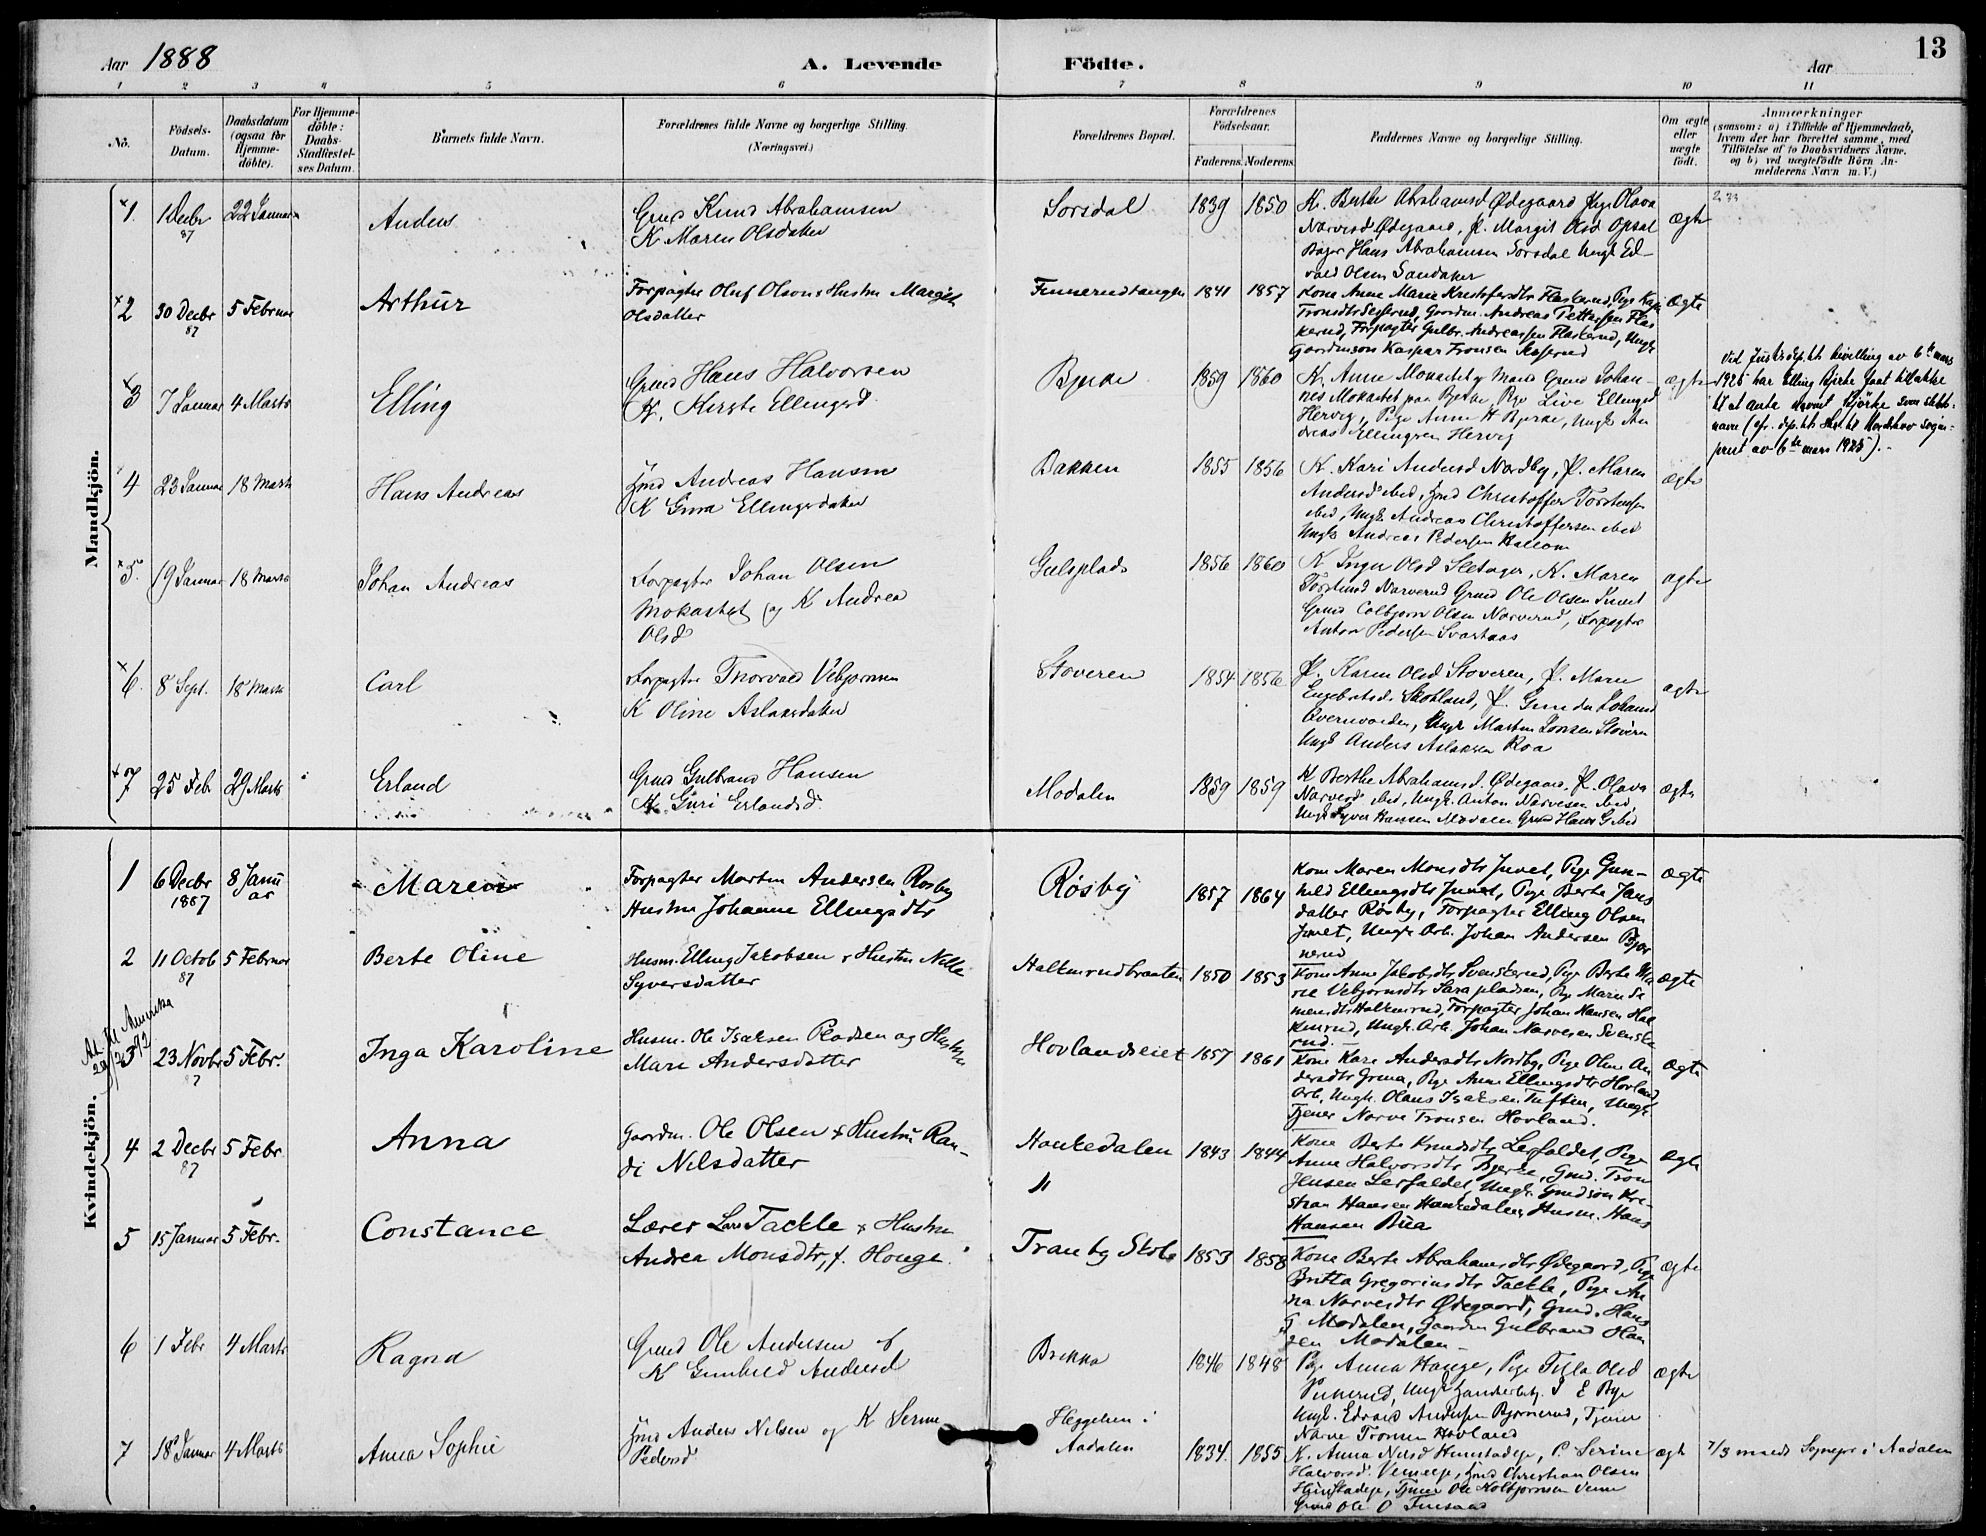 Aar 1888
A. Levende Födte.
Aar
13
1 2 3 4 5 6 7 8 9 10 11
No.
Födsels-Datum.
Daabsdatum (ogsaa for Hjemme-döbte).
For Hjemme-döbte: Daabs-Stadfæstel-ses Datum.
Barnets fulde Navn.
Forældrenes fulde Navne og borgerlige Stilling.
(Næringsvei.)
Forældrenes Bopæl.
Forældrenes Födselsaar.
Faderens. Moderens.
Faddernes Navne og borgerlige Stilling.
Om ægte eller uægte födt.
Anmærkninger
(saasom: a) i Tilfælde af Hjemmedaab,
hvem der har forrettet samme, med
Tilföielse af to Daabsvidners Navne,
og b) ved uægtefödte Börn An-
melderens Navn m. V.)
Mandkjön.
1. 1 Decbr 87 22 Januar Anders
Grmd Knud Abrahamsen
K Maren Olsdatter
Sorsdal 1839 1850
K. Berthe Abrahamsd Ødegaard Pige Olava
Narvesd Ødegaard, P. Margit Olsd Opsal
Bager Hans Abrahamsen Sorsdal Ungk Ed-
vald Olsen Sandaker
ægte
2 30 Decbr 87 5 Februar Arthur
Forpagter Oluf Olson & Hustru Margit
Olsdatter
Finnerudtangen 1841 1857
Kone Anne Marie Kristofersdtr Flaskerud, Pige
Gaardm. Andreas Pettersen Flas
kerud, Forpagter Gulbr. Andreassen Flaskerud, Ungk
Gaardmsøn Kaspar Tronsen
ægte
3 7 Januar 4 Marts Elling
Grmd Hans Halvorsen
K. Kirste Ellingsd
Bjerke 1859 1860
K. Anne Mokastet Mand Grmd Johan-
nes Mokastet paa Bjerke, Pige Live Ellingsd
Hervig, Pige Anne H Bjerke, Ungk An
dreas Ellingsen Hervig
ægte
Ved Justisdep.ts bevilling av 6te mars
1925 har Elling Bjerke faat tilladelse
til at anta navnet Bjørke som slekts-
navn
av 6te mars 1925).
4 23 Januar 18 Marts Hans Andreas
Andreas Hansen
K Guria Ellingsdatter
Bakken 1855 1856
K. Kari Andersd Nordby, P. Maren
Andersd ibid, Christoffer Torstensen
ibid, Ungk Andreas Christoffersen ibid
Ungk Andreas Pedersen
ægte
5. 19 Januar 18 Marts Johan Andreas
Forpagter Johan Olsen
Mokastet og K Andrea
Olsd
Gulsplads 1856 1860
K Inger Olsd Sletager, K. Maren
Narverud Grmd Ole Olsen Juvet
Grmd Colbjørn Olsen Narverud, Forpagter
Anton Pedersen Svartaas
ægte
6. 8 Sept. 18 Marts Carl
Forpagter Thorvald Vebjørnsen
K Oline Aslaksdatter
Støveren 1854 1856
P. Karen Olsd Støveren, P. Maren
Engebretsd. Skotland, P. Gunda Johansd
Ungk Morten Larsen Støveren
Ungk Anders Aslaksen Roa
ægte
7 25 Feb 29 Marts Erland
Grmd Gulbrand Hansen
K. Guri Erlandsd
Modalen 1859 1859
K Berthe Abrahamsd. Ødegaard, P. Olava
Narvesd ibid, Ungk. Anton Narvesen ibid,
Ungk Syver Hansen Modalen Grmd Hans G ibid
ægte
Kvindekjön.
1 6 Decbr 1887 8 Janu ar Maren
Forpagter Morten Andersen Røsby
Hustru Johanne Ellingsdtr
Røsby 1857 1864
Kone Maren Monsdtr Juvet, Pige Gun-
hild Ellingsdtr Juvet, Pige Berte Jans
datter Røsby, Forpagter Elling Olsen
Juvet, Ungk Arb. Johan Andersen Bjør
nerud
ægte
2 11 Octob 87 5 Februar Berte Oline
Husm. Elling Jakobsen & Hustru Nille
Syversdatter
Halkinrudbraaten 1850 1853
Kone Anne Jakobsdtr Svenskerud, Pige Berte Ma
rie Vebjørnsdtr Sarapladsen, Pige Marie Si
mensdtr Halkinrud, Forpagter Johan Hansen Hal
kinrud, Ungk. Arb. Johan Narvesen Svenske
rud.
ægte
Att. til Amerika
29/2 92
3 23 Novbr 87 5 Febr. Inga Karoline
Husm. Ole Isaksen Pladsen og Hustru
Mari Andersdatter
Hovlandseiet 1857 1861
Kone Kari Andersdtr Nordby, Pige Oline An
dersdtr Grina, Pige Anne Ellingsdtr Hovland
Arb. Ungk. Olaus Isaksen Tuften, Ungk
Tjener Narve Tronsen Hovland.
ægte
4 2 Decbr 87 5 Febr. Anna
Gaardm. Ole Olsen & Hustru Ran-
di Nilsdatter
Hankedalen
"
1843 1844
Kone Berte Knudsdtr Lerfaldet, Pige
Anne Halvorsdtr Bjerke, Gmd. Tron
Jensen Lerfaldet, Ungk. Gmdsøn Kri-
stian Hansen Hankedalen, Husm. Hans
Hansen Bua
ægte
5 15 Januar 5 Febr. Constance
Lærer Lars Tackle & Hustru
Andrea Monsdtr, f. Houge.
Tranby Skole 1853 1858
Kone Berte Abrahamsdtr Ødegaard, Pige
Britta Gregoriusdtr Tackle, Pige An
na Narvesdtr Ødegaard, Gmd. Hans
G Modalen, Gaardm Gulbrand Han
sen Modalen
ægte
6 1 Febr 4 Marts Ragna
Grmd Ole Andersen &
K Gunhild Andersd
Brekka 1846 1848
Pige Anna Hauge, Pige Tilla Olsd
Ungk Handelsbetj. S E Bye
Ungk. Edvard Andersen Bjørnerud, Tjener
Narve Tronsen Hovland
ægte
7 18 Januar 4 Marts Anna Sophie
Anders Nilsen og K Serine
Pedersd
Heggelien i
Aadalen
1834. 1855
K. Anna Nilsd P. Serine
Halvorsd. Christian Olsen
Tjener Ole Kolbjørnsen
Grmd Ole O
ægte
7/3 meds Sognepr i Aadalen